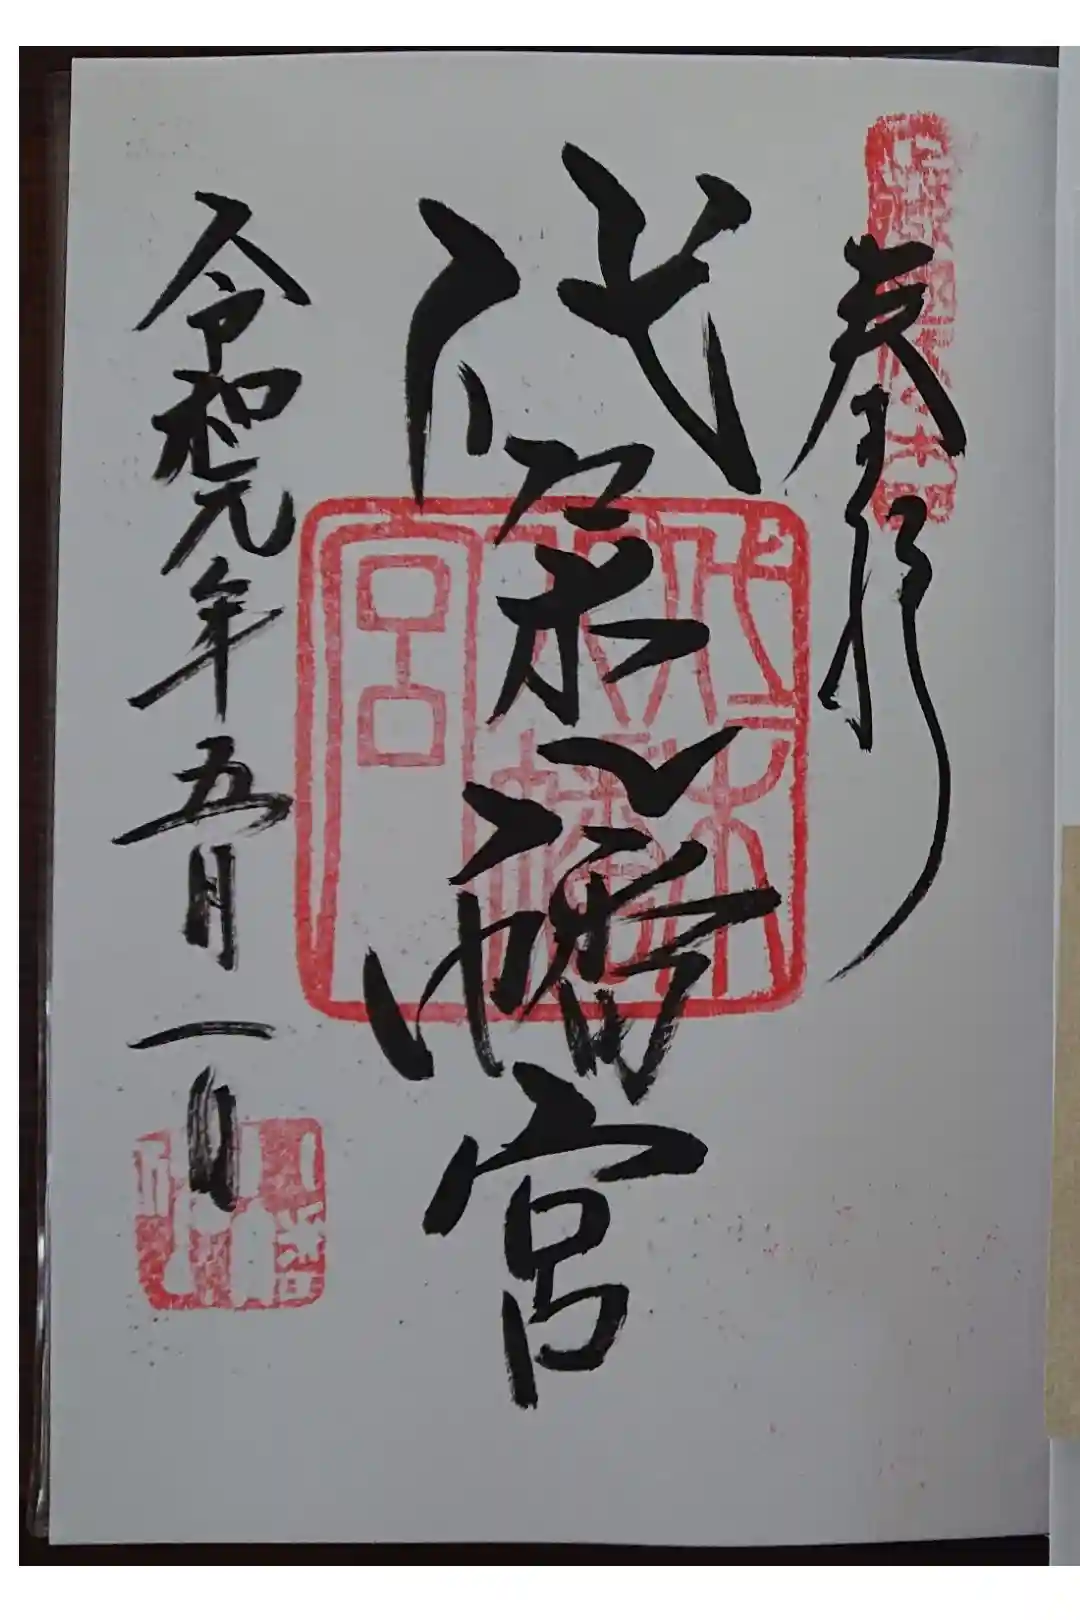 奉拝
代々木八幡宮
代々木八幡宮
令和元年五月一日